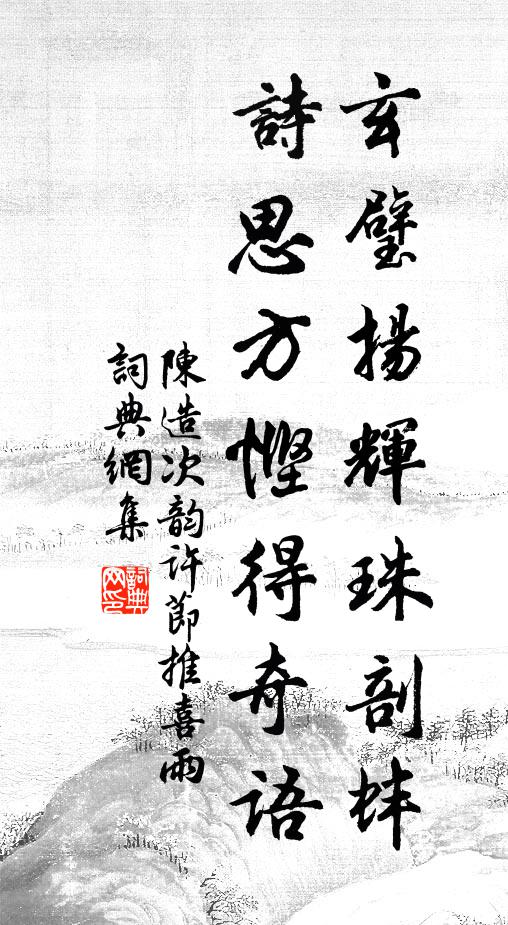 玄璧揚輝珠剖蚌
詩思方慳得奇语
陳造次韵许節推喜雨
詞典網集
詞典網印